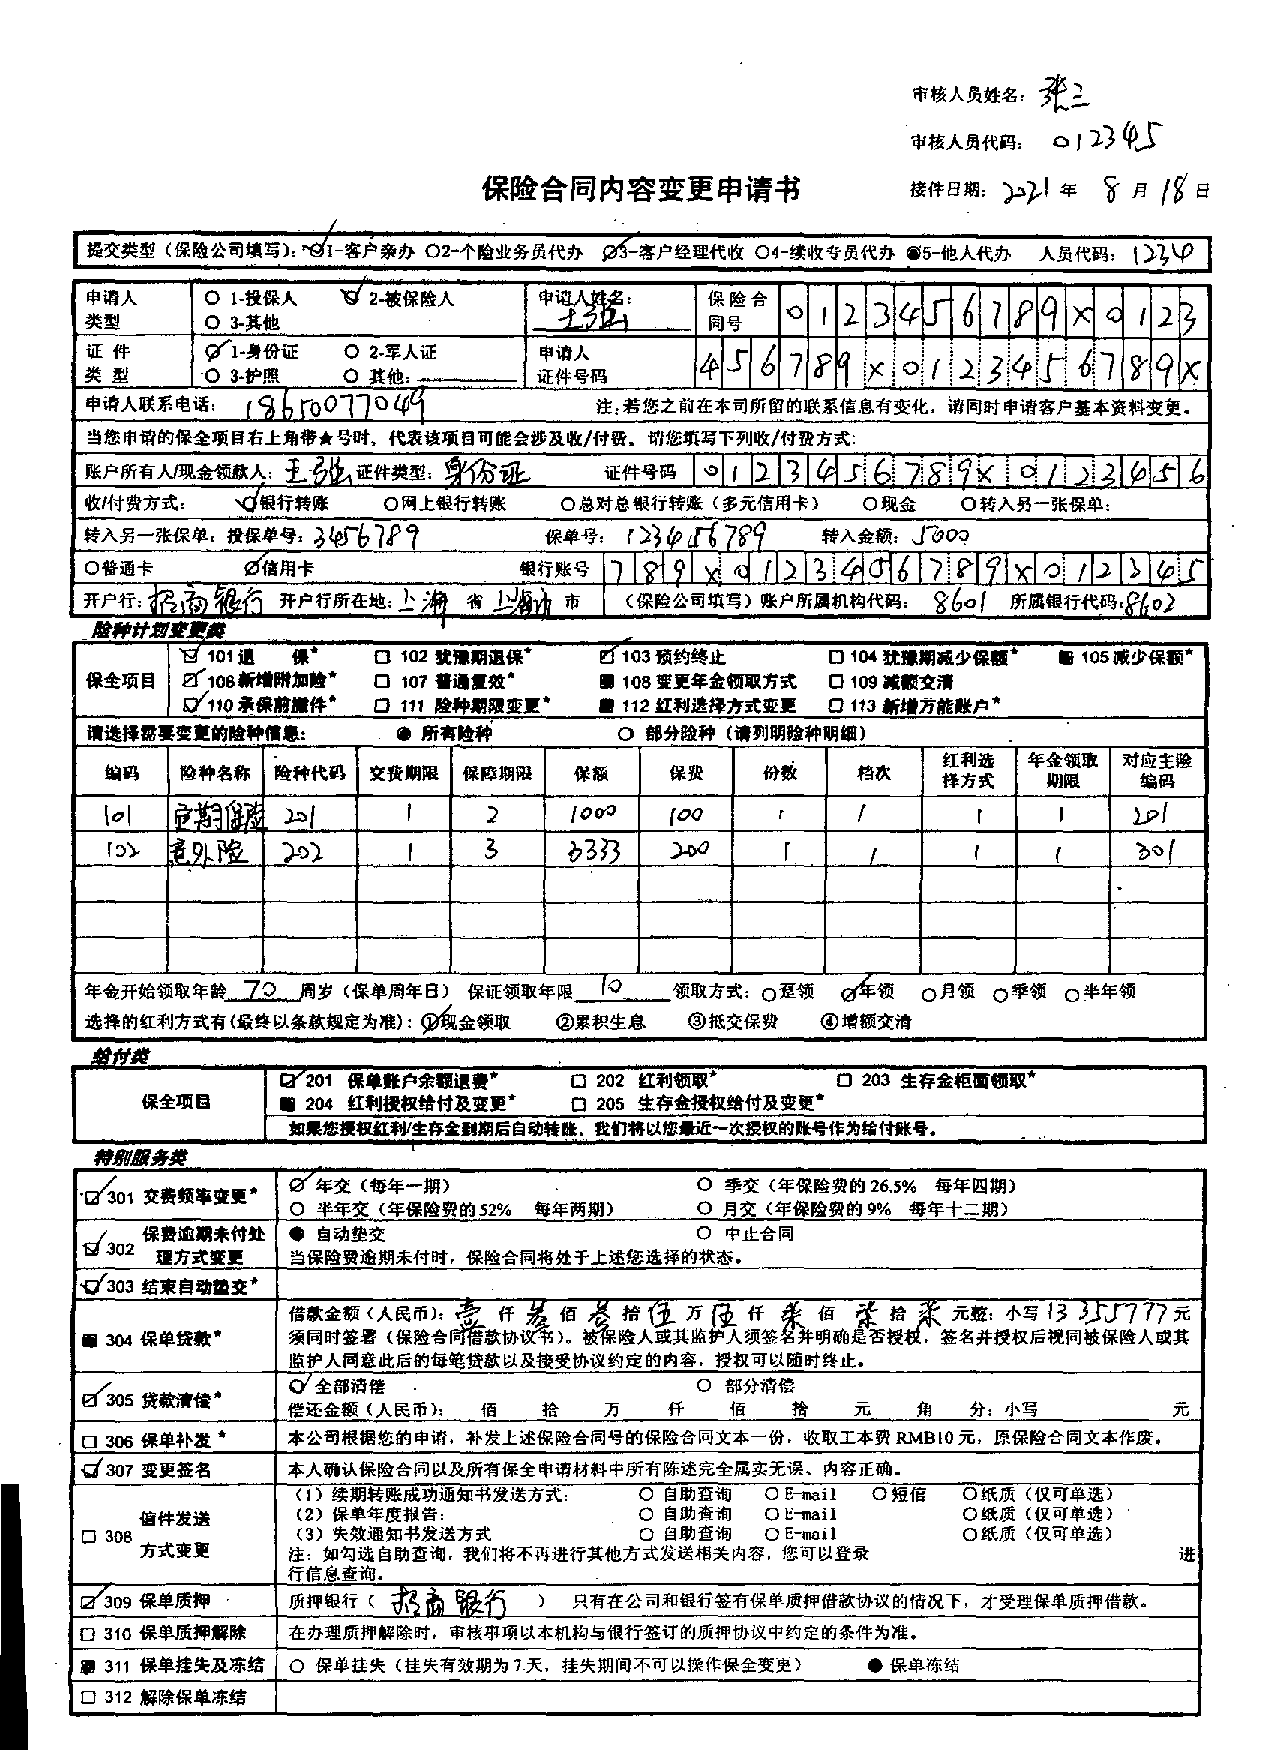 审核人员姓名：张三
审核人员代码：012345
保险合同内容变更申请书
接件日期：2021年 8月18日
提交类型（保险公司填写）：☑1-客户亲办 ○2-个险业务员代办 ☑3-客户经理代收 ○4-续收专员代办 ●5-他人代办 人员代码：1234
申请人类型 ○ 1-投保人 ☑ 2-被保险人 ○ 3-其他 申请人姓名：王弘 保险合同号 0123456789X0123
证件类型 ☑ 1-身份证 ○ 2-军人证 ○ 3-护照 ○ 其他： 申请人证件号码 456789X0123456789X
申请人联系电话：18650077049 注：若您之前在本司所留的联系信息有变化，请同时申请客户基本资料变更。
当您申请的保全项目右上角带★号时，代表该项目可能会涉及收/付费。请您填写下列收/付费方式：
账户所有人/现金领款人：王弘 证件类型：身份证 证件号码 0123456789X0123456
收/付费方式： ☑银行转账 ○网上银行转账 ○总对总银行转账（多元信用卡） ○现金 ○转入另一张保单：
转入另一张保单：投保单号：3456789 保单号：123456789 转入金额：5000
○普通卡 ☑信用卡 银行账号 789X0123456789X012345
开户行：招商银行 开户行所在地：上海 省 上海市 市 （保险公司填写）账户所属机构代码：8601 所属银行代码：8602
险种计划变更类
保全项目
☑ 101 退 保* □ 102 犹豫期退保* ☑ 103 预约终止 □ 104 犹豫期减少保额* ■ 105 减少保额*
☑ 106 新增附加险* □ 107 普通复效* ■ 108 变更年金领取方式 □ 109 减额交清
☑ 110 承保前撤件* □ 111 险种期限变更* ■ 112 红利选择方式变更 □ 113 新增万能账户*
请选择需要变更的险种信息： ● 所有险种 ○ 部分险种（请列明险种明细）
编码 险种名称 险种代码 交费期限 保障期限 保额 保费 份数 档次 红利选择方式 年金领取期限 对应主险编码
101 定期保险 201 1 2 1000 100 1 1 1 1 201
102 意外险 202 1 3 3333 200 1 1 1 1 301
年金开始领取年龄 70 周岁（保单周年日） 保证领取年限 10 领取方式：○趸领 ☑年领 ○月领 ○季领 ○半年领
选择的红利方式有(最终以条款规定为准)：①现金领取 ②累积生息 ③抵交保费 ④增额交清
给付类
保全项目
☑ 201 保单账户余额退费* □ 202 红利领取* □ 203 生存金柜面领取*
■ 204 红利授权给付及变更* □ 205 生存金授权给付及变更*
如果您授权红利/生存金到期后自动转账，我们将以您最近一次授权的账号作为给付账号。
特别服务类
☑ 301 交费频率变更* ☑ 年交（每年一期） ○ 季交（年保险费的26.5% 每年四期）
○ 半年交（年保险费的52% 每年两期） ○ 月交（年保险费的9% 每年十二期）
☑ 302 保费逾期未付处理方式变更 ● 自动垫交 ○ 中止合同
当保险费逾期未付时，保险合同将处于上述您选择的状态。
☑ 303 结束自动垫交*
■ 304 保单贷款* 借款金额（人民币）：壹 仟 叁 佰 叁 拾 伍 万 伍 仟 柒 佰 柒 拾 柒 元整；小写13355777元
须同时签署《保险合同借款协议书》。被保险人或其监护人须签名并明确是否授权，签名并授权后视同被保险人或其
监护人同意此后的每笔贷款以及接受协议约定的内容，授权可以随时终止。
☑ 305 贷款清偿* ☑ 全部清偿 ○ 部分清偿
偿还金额（人民币）： 佰 拾 万 仟 佰 拾 元 角 分；小写 元
□ 306 保单补发* 本公司根据您的申请，补发上述保险合同号的保险合同文本一份，收取工本费RMB10元，原保险合同文本作废。
☑ 307 变更签名 本人确认保险合同以及所有保全申请材料中所有陈述完全属实无误、内容正确。
□ 308 信件发送方式变更
（1）续期转账成功通知书发送方式： ○ 自助查询 ○ E-mail ○ 短信 ○ 纸质（仅可单选）
（2）保单年度报告： ○ 自助查询 ○ E-mail ○ 纸质（仅可单选）
（3）失效通知书发送方式 ○ 自助查询 ○ E-mail ○ 纸质（仅可单选）
注：如勾选自助查询，我们将不再进行其他方式发送相关内容，您可以登录 进
行信息查询。
☑ 309 保单质押 质押银行（ 招商银行 ） 只有在公司和银行签有保单质押借款协议的情况下，才受理保单质押借款。
□ 310 保单质押解除 在办理质押解除时，审核事项以本机构与银行签订的质押协议中约定的条件为准。
■ 311 保单挂失及冻结 ○ 保单挂失（挂失有效期为7天，挂失期间不可以操作保全变更） ● 保单冻结
□ 312 解除保单冻结